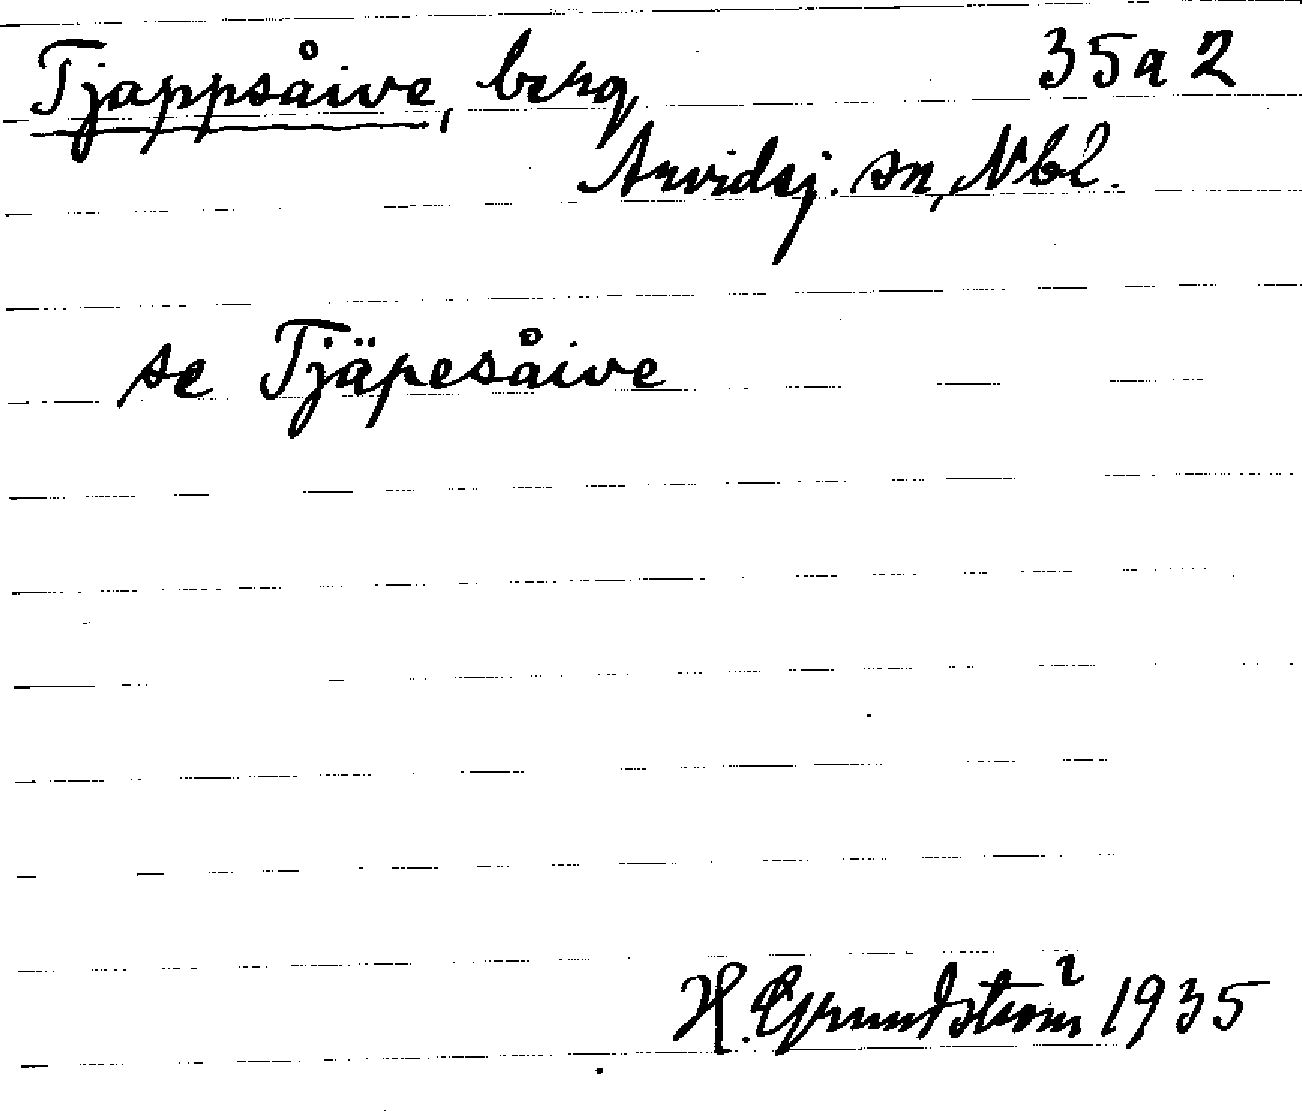 Tjappsåive, berg 35a2
Arvidsj. sn, Nbl.
se Tjäpesåive
H. Grundström 1935